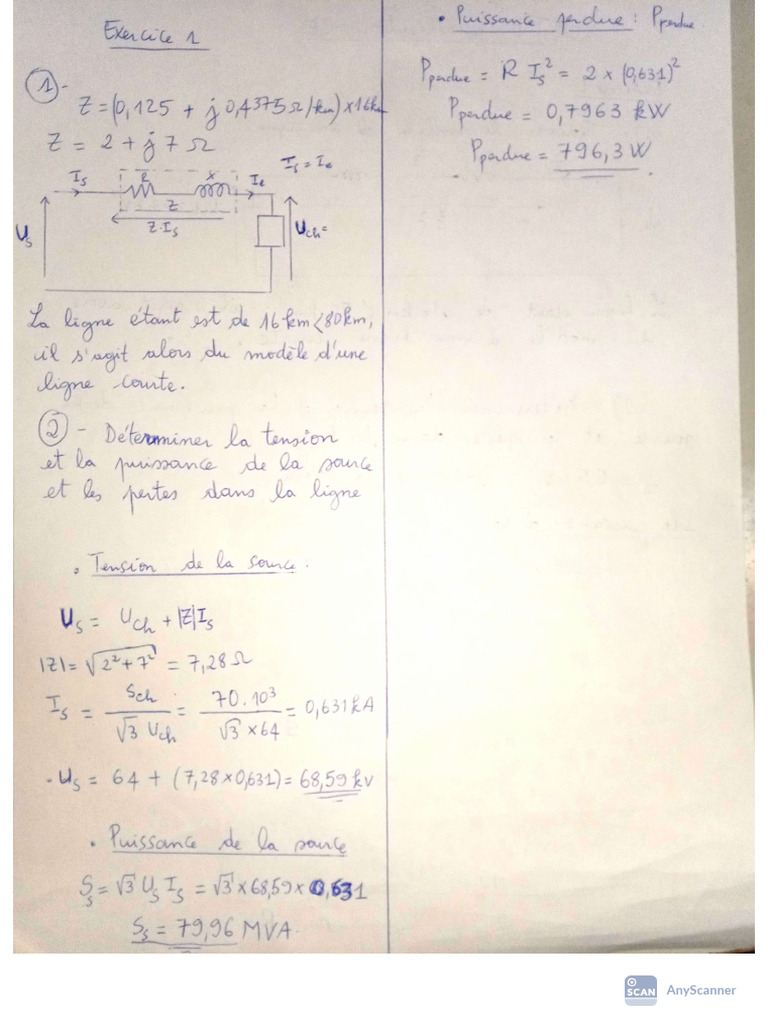 Exercice 1
1) - Z = (0,125 + j 0,4375 Ω/km) × 16km
Z = 2 + j 7 Ω
Is R X Ie Is = Ie
Z
Z·Is
Us Uch=
La ligne étant est de 16 km < 80 km,
il s'agit alors du modèle d'une
ligne courte.
2) - Déterminer la tension
et la puissance de la source
et les pertes dans la ligne
• Tension de la source.
Us = Uch + |Z|Is
|Z| = √(2² + 7²) = 7,28 Ω
Is = Sch / (√3 Uch) = 70.10³ / (√3 × 64) = 0,631 kA
- Us = 64 + (7,28 × 0,631) = 68,59 kv
• Puissance de la source
Ss = √3 Us Is = √3 × 68,59 × 0,631
Ss = 79,96 MVA
• Puissance perdue : Pperdue.
Pperdue = R Is² = 2 × (0,631)²
Pperdue = 0,7963 kW
Pperdue = 796,3 W
SCAN AnyScanner